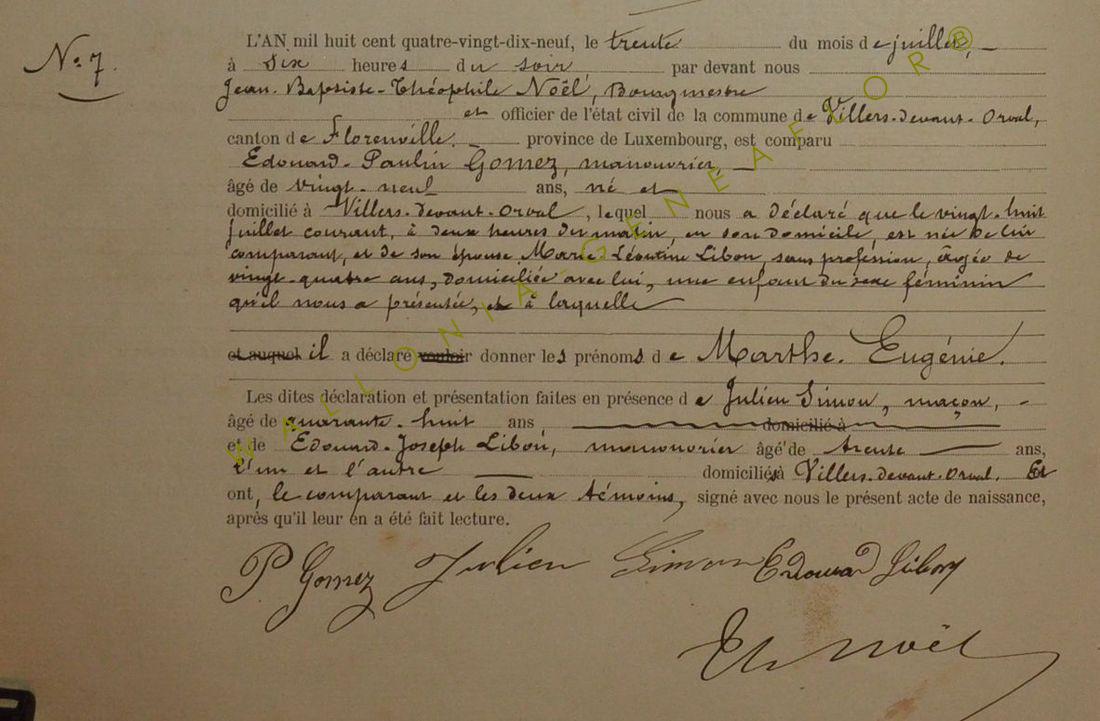 No 7.
L'AN mil huit cent quatre-vingt-dix-neuf, le trente du mois de juillet,
à six heures du soir, par devant nous
Jean-Baptiste-Théophile Noël, Bourgmestre
et officier de l'état civil de la commune de Villers-devant-Orval,
canton de Florenville. province de Luxembourg, est comparu
Edouard-Paulin Gomez, manouvrier,
âgé de vingt-neuf ans, né et
domicilié à Villers-devant-Orval, lequel nous a déclaré que le vingt-huit
juillet courant, à deux heures du matin, en son domicile, est née de lui
comparant, et de son épouse Marie Léontine Libon, sans profession, âgée de
vingt-quatre ans, domiciliée avec lui, une enfant du sexe féminin
qu'il nous a présentée, et à laquelle
et auquel il a déclaré vouloir donner les prénoms de Marthe-Eugénie.
Les dites déclaration et présentation faites en présence de Julien Simon, maçon,
âgé de quarante-huit ans, domicilié à
et de Edouard-Joseph Libon, manouvrier âgé de trente ans,
l'un et l'autre domiciliés à Villers-devant-Orval. Et
ont, le comparant et les deux témoins, signé avec nous le présent acte de naissance,
après qu'il leur en a été fait lecture.
P Gomez Julien Simon Edouard Libon
Th Noël
WALLONIA-GENEAFLOR®